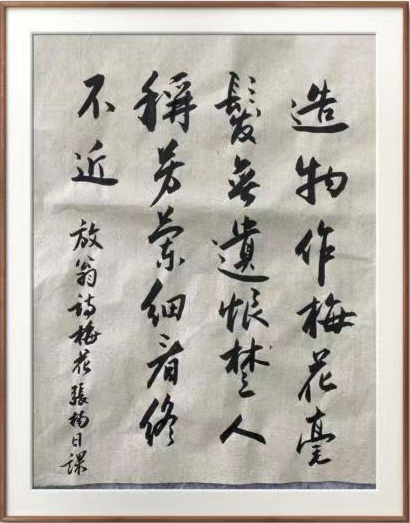 造物作梅花毫
髮無遺恨楚人
稱芳蘭細看終
不近
放翁詩梅花 張楠日課